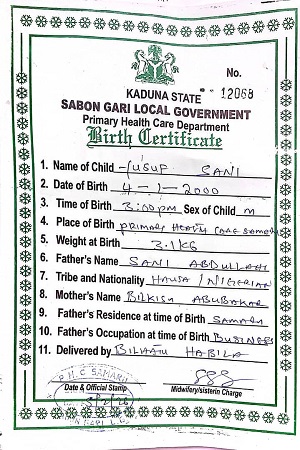 No.
12068
KADUNA STATE
SABON GARI LOCAL GOVERNMENT
Primary Health Care Department
Birth Certificate
1. Name of Child YUSUF SANI
2. Date of Birth 4-1-2000
3. Time of Birth 3:00pm Sex of Child m
4. Place of Birth PRIMARY HEALTH CARE SAMARU
5. Weight at Birth 3.1KG
6. Father's Name SANI ABDULLAHI
7. Tribe and Nationality HAUSA / NIGERIAN
8. Mother's Name BILKISU ABUBAKAR
9. Father's Residence at time of Birth SAMARU
10. Father's Occupation at time of Birth BUSINESS
11. Delivered by HABILA
P.H.C SAMARU
Date & Official Stamp
Midwifery/sisterin Charge